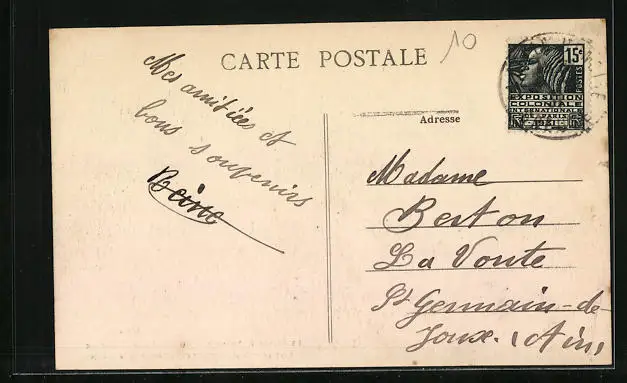 CARTE POSTALE
10
15c
POSTES
EXPOSITION
COLONIALE
INTERNATIONALE
DE PARIS
1931
Mes amitiées et
bons souvenirs
Reine
Adresse
Madame
Berton
La Voute
St Germain-de-
Joux. (Ain)